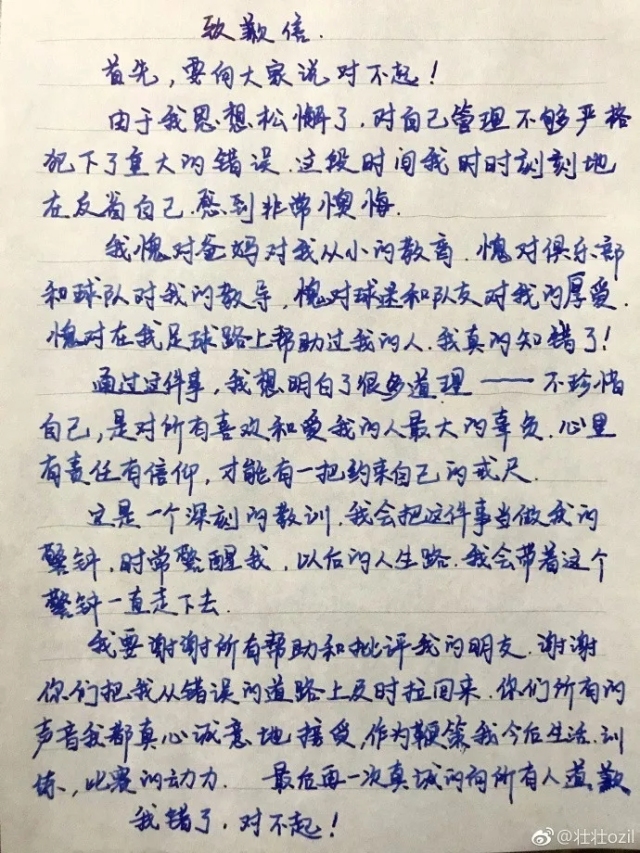 致歉信.
首先,要向大家说对不起!
由于我思想松懈了,对自己管理不够严格
犯下了重大的错误.这段时间我时时刻刻地
在反省自己.感到非常懊悔.
我愧对爸妈对我从小的教育.愧对俱乐部
和球队对我的教导,愧对球迷和队友对我的厚爱.
愧对在我足球路上帮助过我的人.我真的知错了!
通过这件事,我想明白了很多道理——不珍惜
自己,是对所有喜欢和爱我的人最大的辜负.心里
有责任有信仰,才能有一把约束自己的戒尺.
这是一个深刻的教训.我会把这件事当做我的
警钟.时常警醒我,以后的人生路.我会带着这个
警钟一直走下去.
我要谢谢所有帮助和批评我的朋友.谢谢
你们把我从错误的道路上及时拉回来.你们所有的
声音我都真心诚意地接受,作为鞭策我今后生活.训
练,比赛的动力. 最后再一次真诚的向所有人道歉
我错了.对不起!
@壮壮ozil